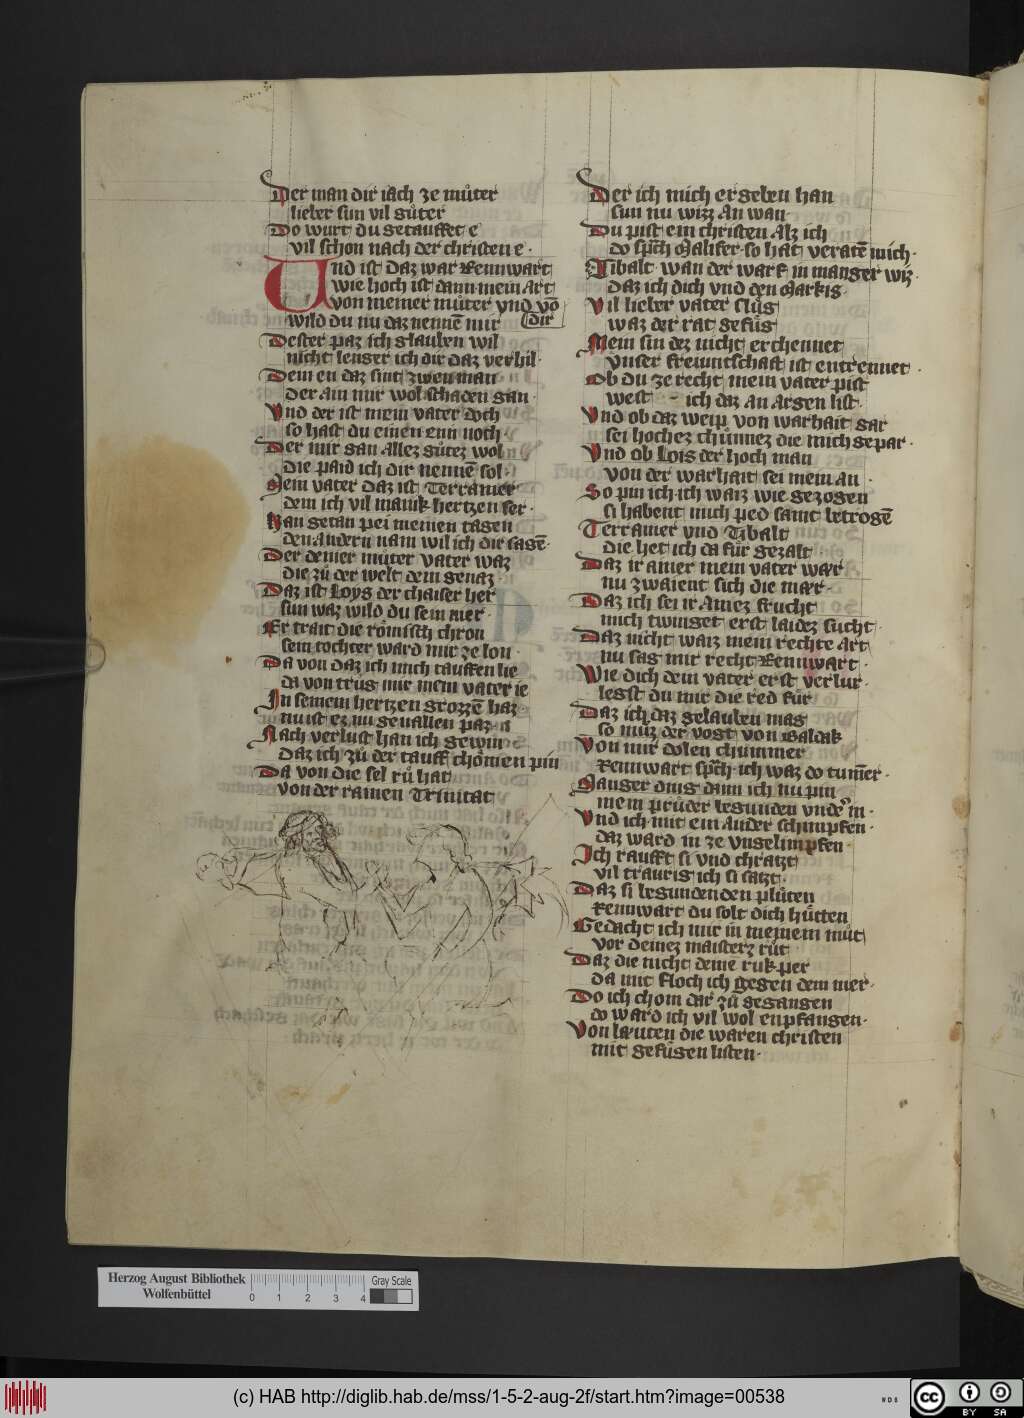 Der man dir iach ze můter
lieber sun vil gůter
Do wurt du getauffet e
vil schon nach der christen e ·
Und ist daz war Rennwart
wie hoch ist dann mein Art
von meiner můter vnd vō
dir
wild du nu daz nennē mir
Dester paz ich glauben wil
nicht lenger ich dir daz verhil ·
Dem en daz sint zwen man
Der Ain mir wol schaden gan ·
Vnd der ist mein vater doch
so hast du einen enn noch ·
Der mir gan Allez gůtez wol
die paid ich dir nennē sol ·
Mein vater daz ist Terramer
dem ich vil manik hertzen ser ·
Han getan pei meinen tagen
den Andern nam wil ich dir sagē ·
Der deiner můter vater waz
die zů der welt dein genaz ·
Daz ist Loys der chaiser her
sun waz wild du sein mer ·
Er trait die rŏmisch chron
sein tochter ward mir ze lon ·
Da von daz ich mich tauffen lie
da von trůg mir mein vater ie
In seinem hertzen grozzē haz
nu ist ez im geuallen paz
Nach verlust han ich gewin
daz ich zů der tauff chŏmen pin
Da von die sel rů hat
von der rainen Trinitat
Der ich mich ergeben han
sun nu wizz An wan
Du pist ein christen Alz ich
do sp̄ch Malifer so hat veratē mich ·
Tibalt wan der warf in manger wiz ·
Daz ich dich vnd den Markis ·
Vil lieber vater slůg
waz der rat gefůg
Mein sin dez nicht erchennet
vnser freuntschaft ist entrennet ·
Ob du ze recht mein vater pist
west ich daz An Argen list ·
Vnd ob daz weip von warhait gar
sei hochez chůnnez die mich gepar ·
Vnd ob Lois der hoch man
von der warhait sei mein An ·
So pin ich ich waiz wie gezogen
si habent mich ped samt betrogē
Terramer vnd Tibalt
die het ich da fůr gezalt
Daz ir ainer mein vater wær
nu zwaient sich die mær ·
Daz ich sei ir Ainez frucht
mich twinget erst laidez sucht ·
Daz nicht waiz mein rechte Art
nu sag mir recht Rennwart ·
Wie dich dein vater erst verlur ·
legst du mir die red fůr
Daz ich daz gelauben mag
so můz der vogt von Baldak
Von mir dolen chummer
Rennwart sp̄ch ich waz do tum̄er ·
Manger ding dann ich nu pin
mein průder begunden
Vnd ich mit ein Ander schimpfen ·
daz ward in ze vngelimpfen ·
Ich raufft si vnd chratzt
vil traurig ich si satzt ·
Daz si begunden den plůten
Rennwart du solt dich hůtten
Gedacht ich mir in meinem můt
vor deinez maisterz růt
Daz die nicht deine ruk per
da mit floch ich gegen dem mer ·
Do ich chom dar zů gegangen
do ward ich vil wol enpfangen ·
Von læuten die waren christen
mit gefůgen listen ·
Herzog August Bibliothek
Wolfenbüttel
0 1 2 3 4
Gray Scale
(c) HAB http://diglib.hab.de/mss/1-5-2-aug-2f/start.htm?image=00538
cc BY SA